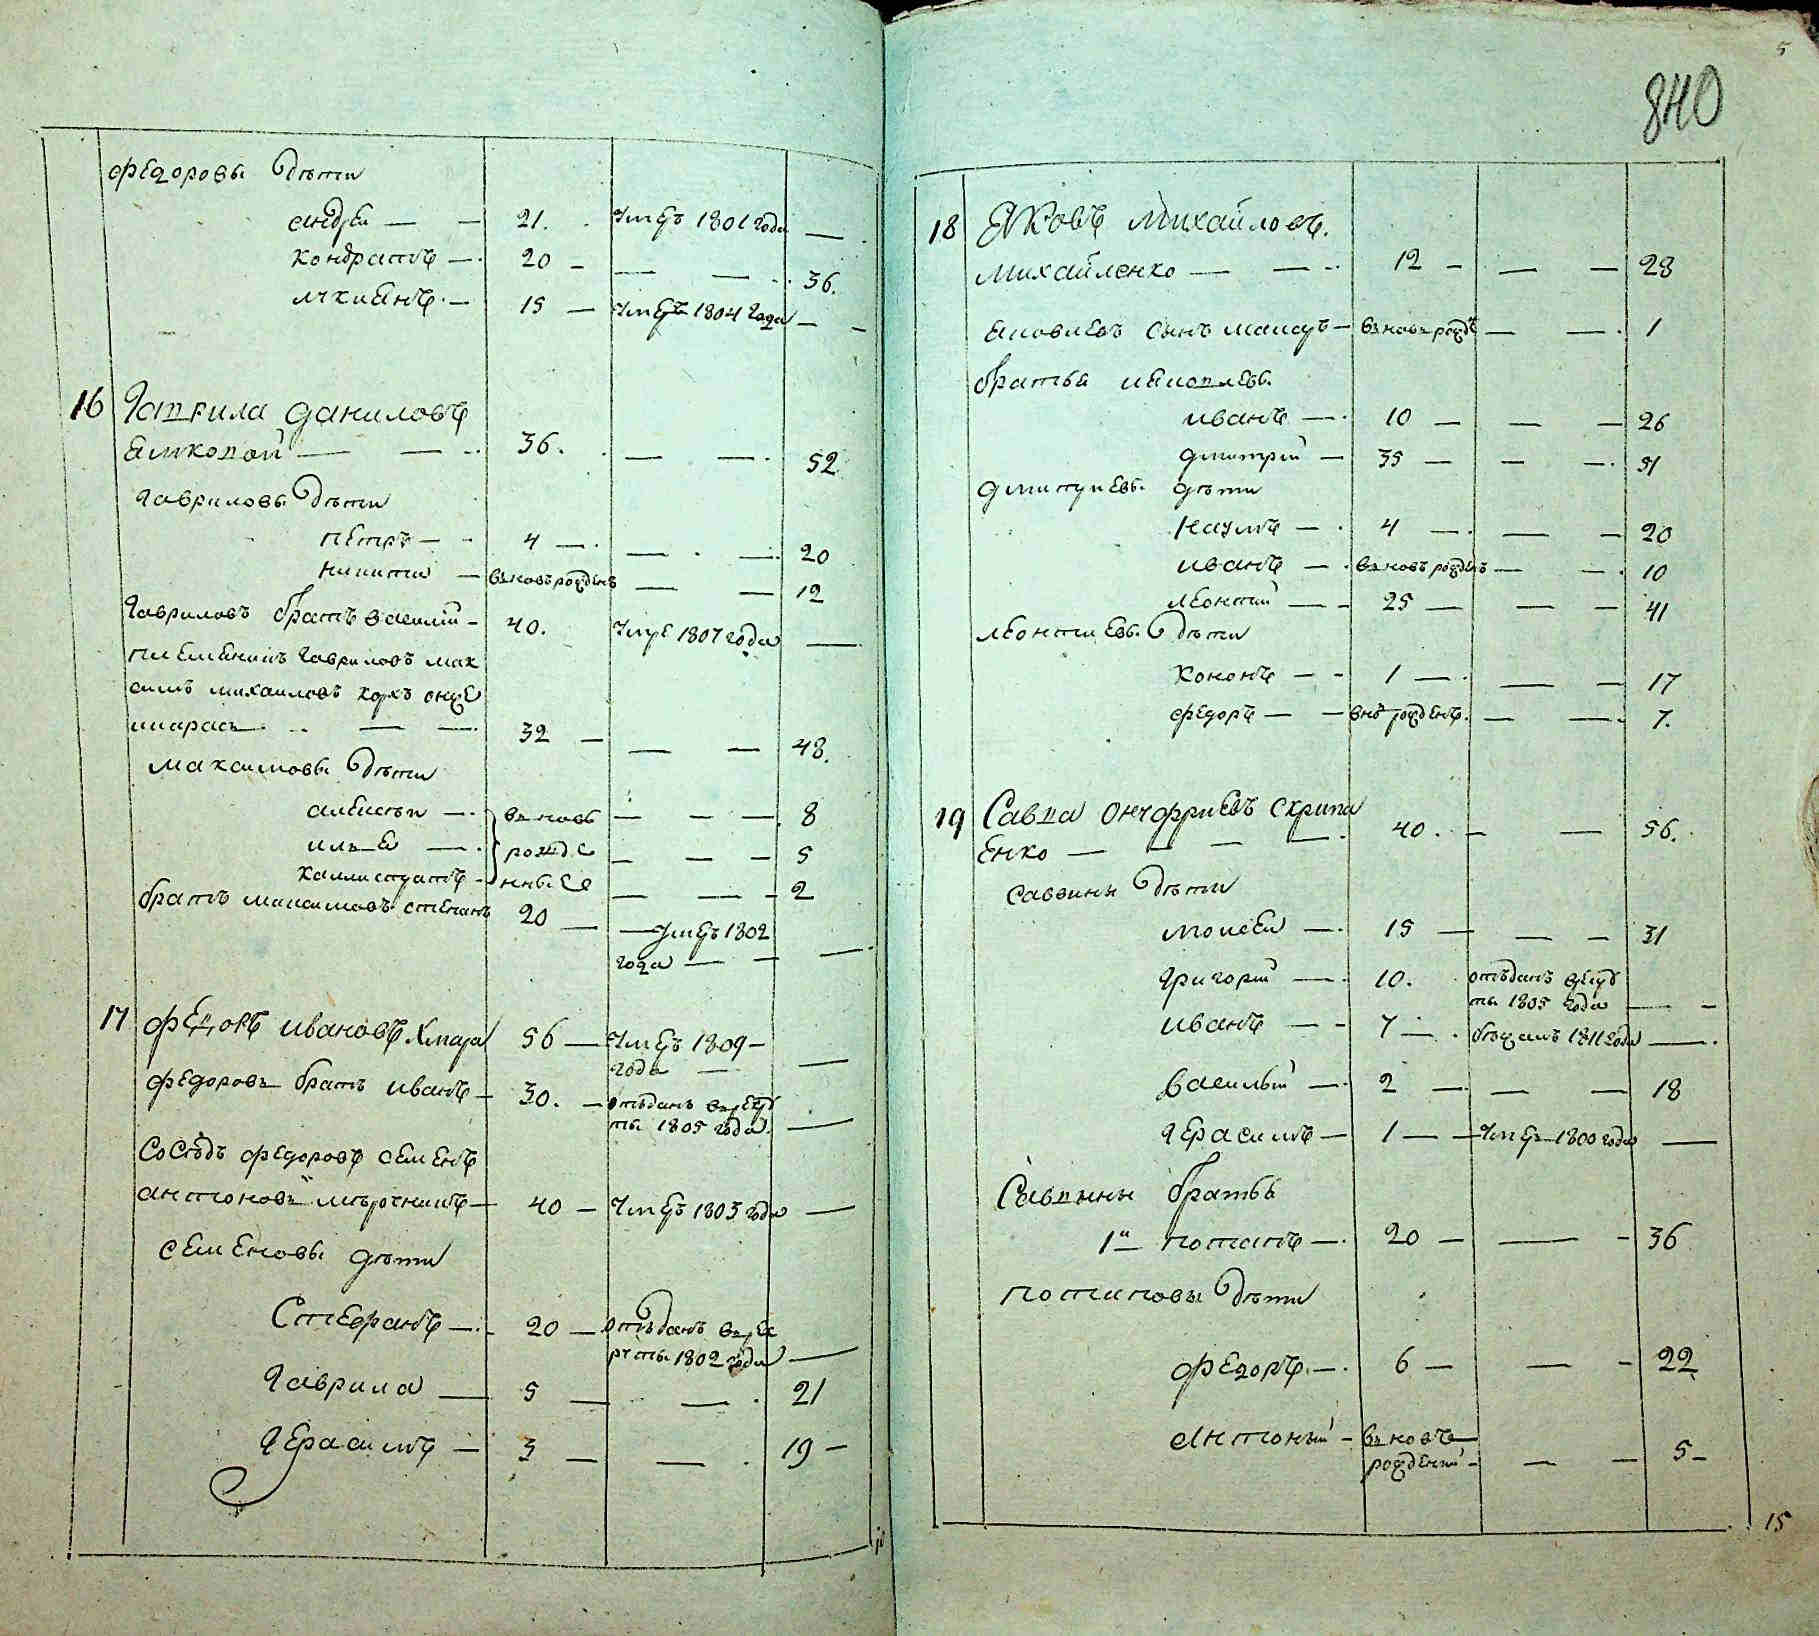 Федоровы дети
андрей — — 21. умеръ 1801 года —
кондратъ — 20 — — — 36.
лукиянъ — 15 — умеръ 1804 года — —
16 Гаврила даниловъ
36. — — 52
гавриловы дети
петръ — 4 — — — 20
никита — вновь рожденъ — — 12
гавриловъ братъ василий — 40. умре 1807 года —
племеникъ гавриловъ мак
симъ михаиловъ онже
— — 32 — — — 48.
максимовы дети
алексей — вновь — — — 8
илья — рожде — — — 5
каллистратъ — нные — — — 2
братъ максимовъ степанъ 20 — — умеръ 1802
года — — —
17 Федоръ ивановъ Хмара 56 — умеръ 1809 —
года — —
федоровъ братъ иванъ — 30. — отъданъ врекру
ты 1805 года. —
Соседъ федоровъ семенъ
антоновъ мирочникъ — 40 — умеръ 1803 года —
семеновы дети
Стефанъ — 20 — отъданъ врек
руты 1802 года —
гаврила — 5 — — 21
герасимъ — 3 — — 19 —
5
840
18 Яковъ михайловъ.
михайленко — — — 12 — — — 28
яковлевъ сынъ — вновь рожде — — 1
братья яковлевы
иванъ — 10 — — — 26
дмитрий — 35 — — — 51
дмитриевы дети
наумъ — 4 — — — 20
иванъ — вновь рожденъ — — 10
леонтий — — 25 — — — 41
леонтиевы дети
кононъ — — 1 — — — 17
федоръ — — внвь рожденъ. — — 7.
19 Савва онуфриевъ скрипч
енко — — — — 40. — — 56.
саввины дети
моисей — 15 — — — 31
григорий — 10. отъданъ врекру
ты 1805 года — —
иванъ — — 7 — бежалъ 1811 года —
василий — 2 — — — 18
герасимъ — 1 — — умеръ 1800 года —
Саввины братья
1й потапъ — 20 — — — 36
потаповы дети
федоръ — 6 — — — 22
антоний — вновь
рожденый — — — 5 —
15